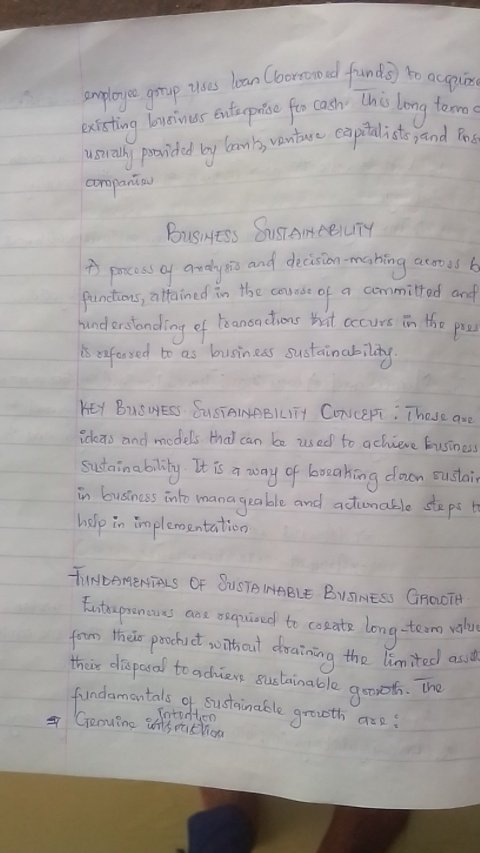 employee group uses loan (borrowed funds) to acquire
existing business enterprise for cash. This long term
usually provided by bank, venture capitalists, and
companies
BUSINESS SUSTAINABILITY
A process of analysis and decision-making across b
functions, attained in the course of a committed and
understanding of transactions that occurs in the pre
is referred to as business sustainability.
KEY BUSINESS SUSTAINABILITY CONCEPT: These are
ideas and models that can be used to achieve business
sustainability. It is a way of breaking down sustain
in business into manageable and actionable steps t
help in implementation.
FUNDAMENTALS OF SUSTAINABLE BUSINESS GROWTH
Entrepreneurs are required to create long-term value
from their product without draining the limited
their disposal to achieve sustainable growth. The
fundamentals of sustainable growth are:
Intention
⇒ Genuine